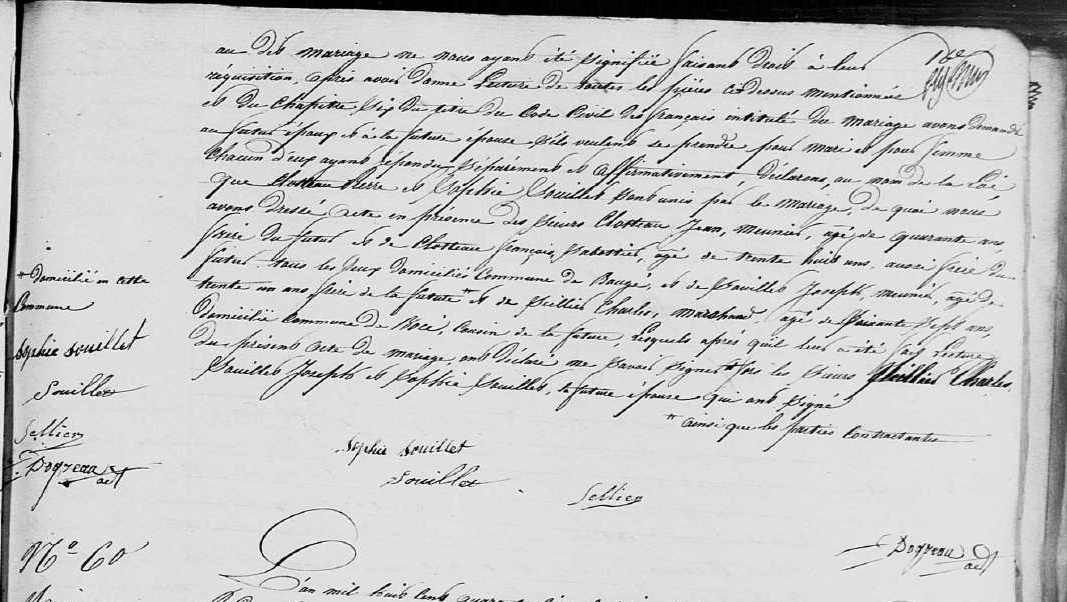 au dit mariage ne nous ayant été signifiée faisant droit à leur
réquisition, après avoir donné lecture de toutes les pièces ci-dessus mentionnées
et du chapitre six du titre du Code Civil des français intitulé du mariage avons demandé
au futur époux et à la future épouse s'ils veulent se prendre pour mari et pour femme
chacun d'eux ayant répondu séparément et affirmativement, déclarons, au nom de la loi
que Clotteau Pierre et Sophie Souillet sont unis par le mariage, de quoi nous
avons dressé acte en présence des sieurs Clotteau Jean, meunier, agé de quarante ans
frère du futur et de Clotteau françois, sabottier, agé de trente huit ans, aussi frère du
futur tous les deux domiciliés commune de Baugé, et de Souillet Joseph, meunier, agé de
trente un ans frère de la future * et de Sellier Charles, marchand agé de soixante sept ans,
domicilié commune de , cousin de la future, lesquels après qu'il leur a été fait lecture
du présent acte de mariage ont déclaré ne savoir signer ** fors les sieurs Sellier Charles,
Souillet Joseph et Sophie Souillet, la future épouse qui ont signé
** ainsi que les parties contractantes
* domicilié en cette
commune
Sophie Souillet
Souillet
Sellier
Sophie Souillet
Souillet
Sellier
N.° 60
L'an mil huit cent quarante